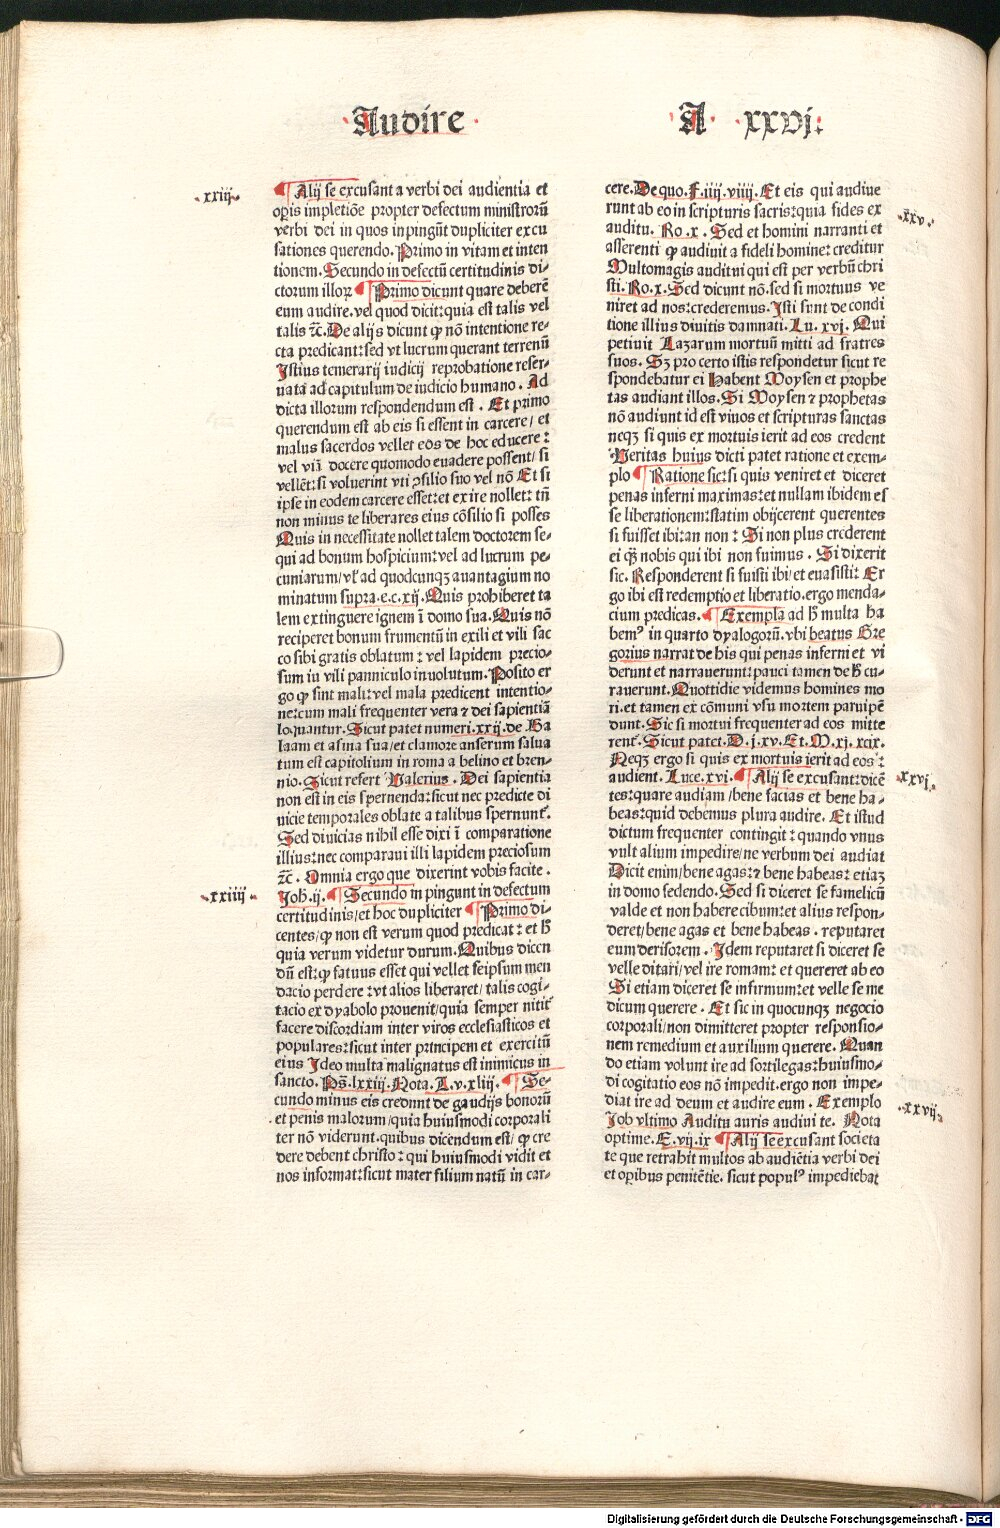 Audire
A xxvj.
xxiij
Alij se excusant a verbi dei audientia et
oꝑis impletiõe propter defectum ministrorũ
verbi dei in quos inpingũt dupliciter excu
sationes querendo. Primo in vitam et inten
tionem. Secundo in defectũ certitudinis di-
ctorum illoꝝ Primo dicunt quare deberẽ
eum audire. vel quod dicit: quia est talis vel
talis ⁊c̃. De alijs dicunt ꝙ nõ intentione re-
cta predicant: sed vt lucrum querant terrenũ
Istius temerarij iudicij reprobatione reser-
uata ad capitulum de iudicio humano. Ad
dicta illorum respondendum est. Et primo
querendum est ab eis si essent in carcere/ et
malus sacerdos vellet eos de hoc educere:
vel viã docere quomodo euadere possent/ si
vellẽt: si voluerint vti ꝯsilio suo vel nõ Et si
ipse in eodem carcere esset: et exire nollet: tñ
non minus te liberares eius cõsilio si posses
Quis in necessitate nollet talem doctorem se-
qui ad bonum hospicium: vel ad lucrum pe-
cuniarum/ vł ad quodcunqꝫ auantagium no
minatum supra.e.c.xij. Quis prohiberet ta
lem extinguere ignem ĩ domo sua. Quis nõ
reciperet bonum frumentũ in exili et vili sac
co sibi gratis oblatum: vel lapidem precio-
sum in vili panniculo inuolutum. Posito er
go ꝙ sint mali: vel mala predicent intentio-
ne: cum mali frequenter vera ⁊ dei sapientiã
loquantur. Sicut patet numeri.xxij. de Ba
laam et asina sua/ et clamore anserum salua
tum est capitolium in roma a belino et bren-
nio. Sicut refert Valerius. Dei sapientia
non est in eis spernenda: sicut nec predicte di
uicie temporales oblate a talibus spernunt᷑.
Sed diuicias nihil esse dixi ĩ comparatione
illius: nec comparaui illi lapidem preciosum
⁊c̃. Omnia ergo que dixerint vobis facite.
xxiiij
Joh.ij. Secundo in pingunt in defectum
certitudinis/ et hoc dupliciter Primo di-
centes/ ꝙ non est verum quod predicat᷑: et hͦ
quia verum videtur durum. Quibus dicen
dũ est: ꝙ fatuus esset qui vellet seipsum men
dacio perdere: vt alios liberaret/ talis cogi-
tacio ex dyabolo prouenit/ quia semper nitit᷑
facere discordiam inter viros ecclesiasticos et
populares: sicut inter principem et exercitũ
eius Ideo multa malignatus est inimicus in
sancto. Ps̃.lxxiij. Nota. L.v.xliij. Se-
cundo minus eis credunt de gaudijs bonorũ
et penis malorum/ quia huiusmodi corporali
ter nõ viderunt. quibus dicendum est/ ꝙ cre
dere debent christo: qui huiusmodi vidit et
nos informat: sicut mater filium natũ in car-
cere. De quo. F.iiij.viiij. Et eis qui audiue
xxv
runt ab eo in scripturis sacris: quia fides ex
auditu. Ro.x. Sed et homini narranti et
asserenti ꝙ audiuit a fideli homine: creditur
Multomagis auditui qui est per verbũ chri
sti. Ro.x. Sed dicunt nõ. sed si mortuus ve
niret ad nos: crederemus. Isti sunt de condi
tione illius diuitis damnati. Lu.xvj. Qui
petiuit Lazarum mortuũ mitti ad fratres
suos. Sꝫ pro certo istis respondetur sicut re
spondebatur ei Habent Moysen et prophe
tas audiant illos. Si Moysen ⁊ prophetas
nõ audiunt id est viuos et scripturas sanctas
neqꝫ si quis ex mortuis ierit ad eos credent
Veritas huius dicti patet ratione et exem-
plo Ratione sic: si quis veniret et diceret
penas inferni maximas: et nullam ibidem es
se liberationem: statim obijcerent querentes
si fuisset ibi: an non: Si non plus crederent
ei qꝫ nobis qui ibi non fuimus. Si dixerit
sic. Responderent si fuisti ibi/ et euasisti: Er
go ibi est redemptio et liberatio. ergo menda-
cium predicas. Exempla ad hͦ multa ha
bemꝰ in quarto dyalogorũ. vbi beatus Gre
gorius narrat de his qui penas inferni et vi
derunt et narrauerunt: pauci tamen de hͦ cu-
rauerunt. Quottidie videmus homines mo
ri. et tamen ex cõmuni vsu mortem paruipẽ
dunt. Sic si mortui frequenter ad eos mitte
rent᷑. Sicut patet. D.j.xv. Et. M.xj.xcix.
Neqꝫ ergo si quis ex mortuis ierit ad eos:
xxvj
audient. Luce.xvi. Alij se excusant: dicẽ
tes: quare audiam/ bene facias et bene ha-
beas: quid debemus plura audire. Et istud
dictum frequenter contingit: quando vnus
vult alium impedire/ ne verbum dei audiat
Dicit enim/ bene agas: ⁊ bene habeas: etiaꝫ
in domo sedendo. Sed si diceret se famelicũ
valde et non habere cibum: et alius respon-
deret/ bene agas et bene habeas. reputaret
eum derisorem. Idem reputaret si diceret se
velle ditari/ vel ire romam: et quereret ab eo
Si etiam diceret se infirmum: et velle se me
dicum querere. Et sic in quocunqꝫ negocio
corporali/ non dimitteret propter responsio-
nem remedium et auxilium querere. Quan
do etiam volunt ire ad sortilegas: huiusmo-
di cogitatio eos nõ impedit. ergo non impe-
diat ire ad deum et audire eum. Exemplo
xxvij
Job vltimo Auditu auris audiui te. Nota
optime. E.vij.ix Alij se excusant societa
te que retrahit multos ab audiẽtia verbi dei
et oꝑibus penitẽtie. sicut populꝰ impediebat
Digitalisierung gefördert durch die Deutsche Forschungsgemeinschaft - DFG